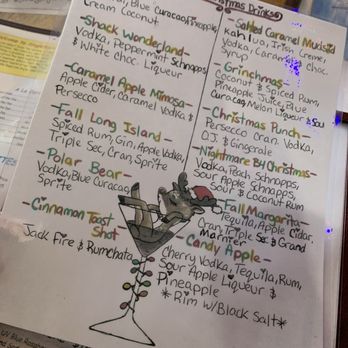 Christmas Drinks
Blue Curacao, Pineapple,
Cream Coconut
- Shack Wonderland -
Vodka, Peppermint Schnapps
& White Choc. Liqueur
- Caramel Apple Mimosa -
Apple Cider, Caramel Vodka &
Persecco
- Fall Long Island -
Spiced Rum, Gin, Apple Vodka,
Triple Sec, Cran, Sprite
- Polar Bear -
Vodka, Blue Curacao,
Sprite
- Cinnamon Toast
Shot -
Jack Fire & Rumchata
- Salted Caramel Mudslid
Kahlua, Irish Creme,
Vodka, Caramel & Choc.
Syrup
- Grinchmas -
Coconut & Spiced Rum,
Pineapple Juice, Blue
Curacao, Melon Liqueur & Sour
- Christmas Punch -
Persecco, Cran. Vodka,
O.J. & Gingerale
- Nightmare B4 Christmas -
Vodka, Peach Schnapps,
Sour Apple Schnapps,
Sour & Coconut Rum
- Fall Margarita -
Tequila, Apple Cidar,
Cran, Triple Sec & Grand
Marnier
- Candy Apple -
Cherry Vodka, Tequila, Rum,
Sour Apple Liqueur &
Pineapple
*Rim w/Black Salt*